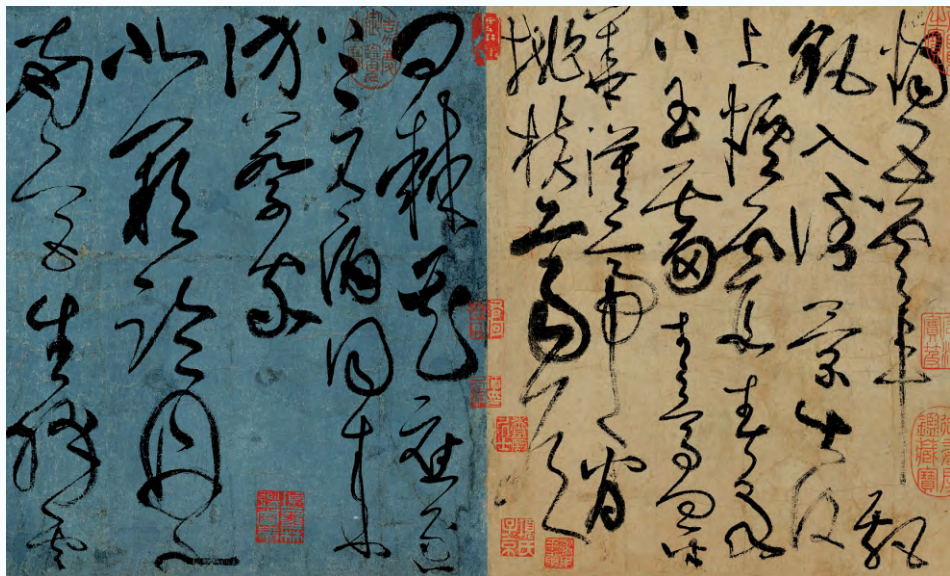 燭五雲車飄
飖入倒景出没
上煙霞春泉
下玉霤青鳥向金
華漢帝看
桃核齊侯
問棘花應逐
上元酒同來
訪蔡家
北闕臨丹水
南宫生絳雲